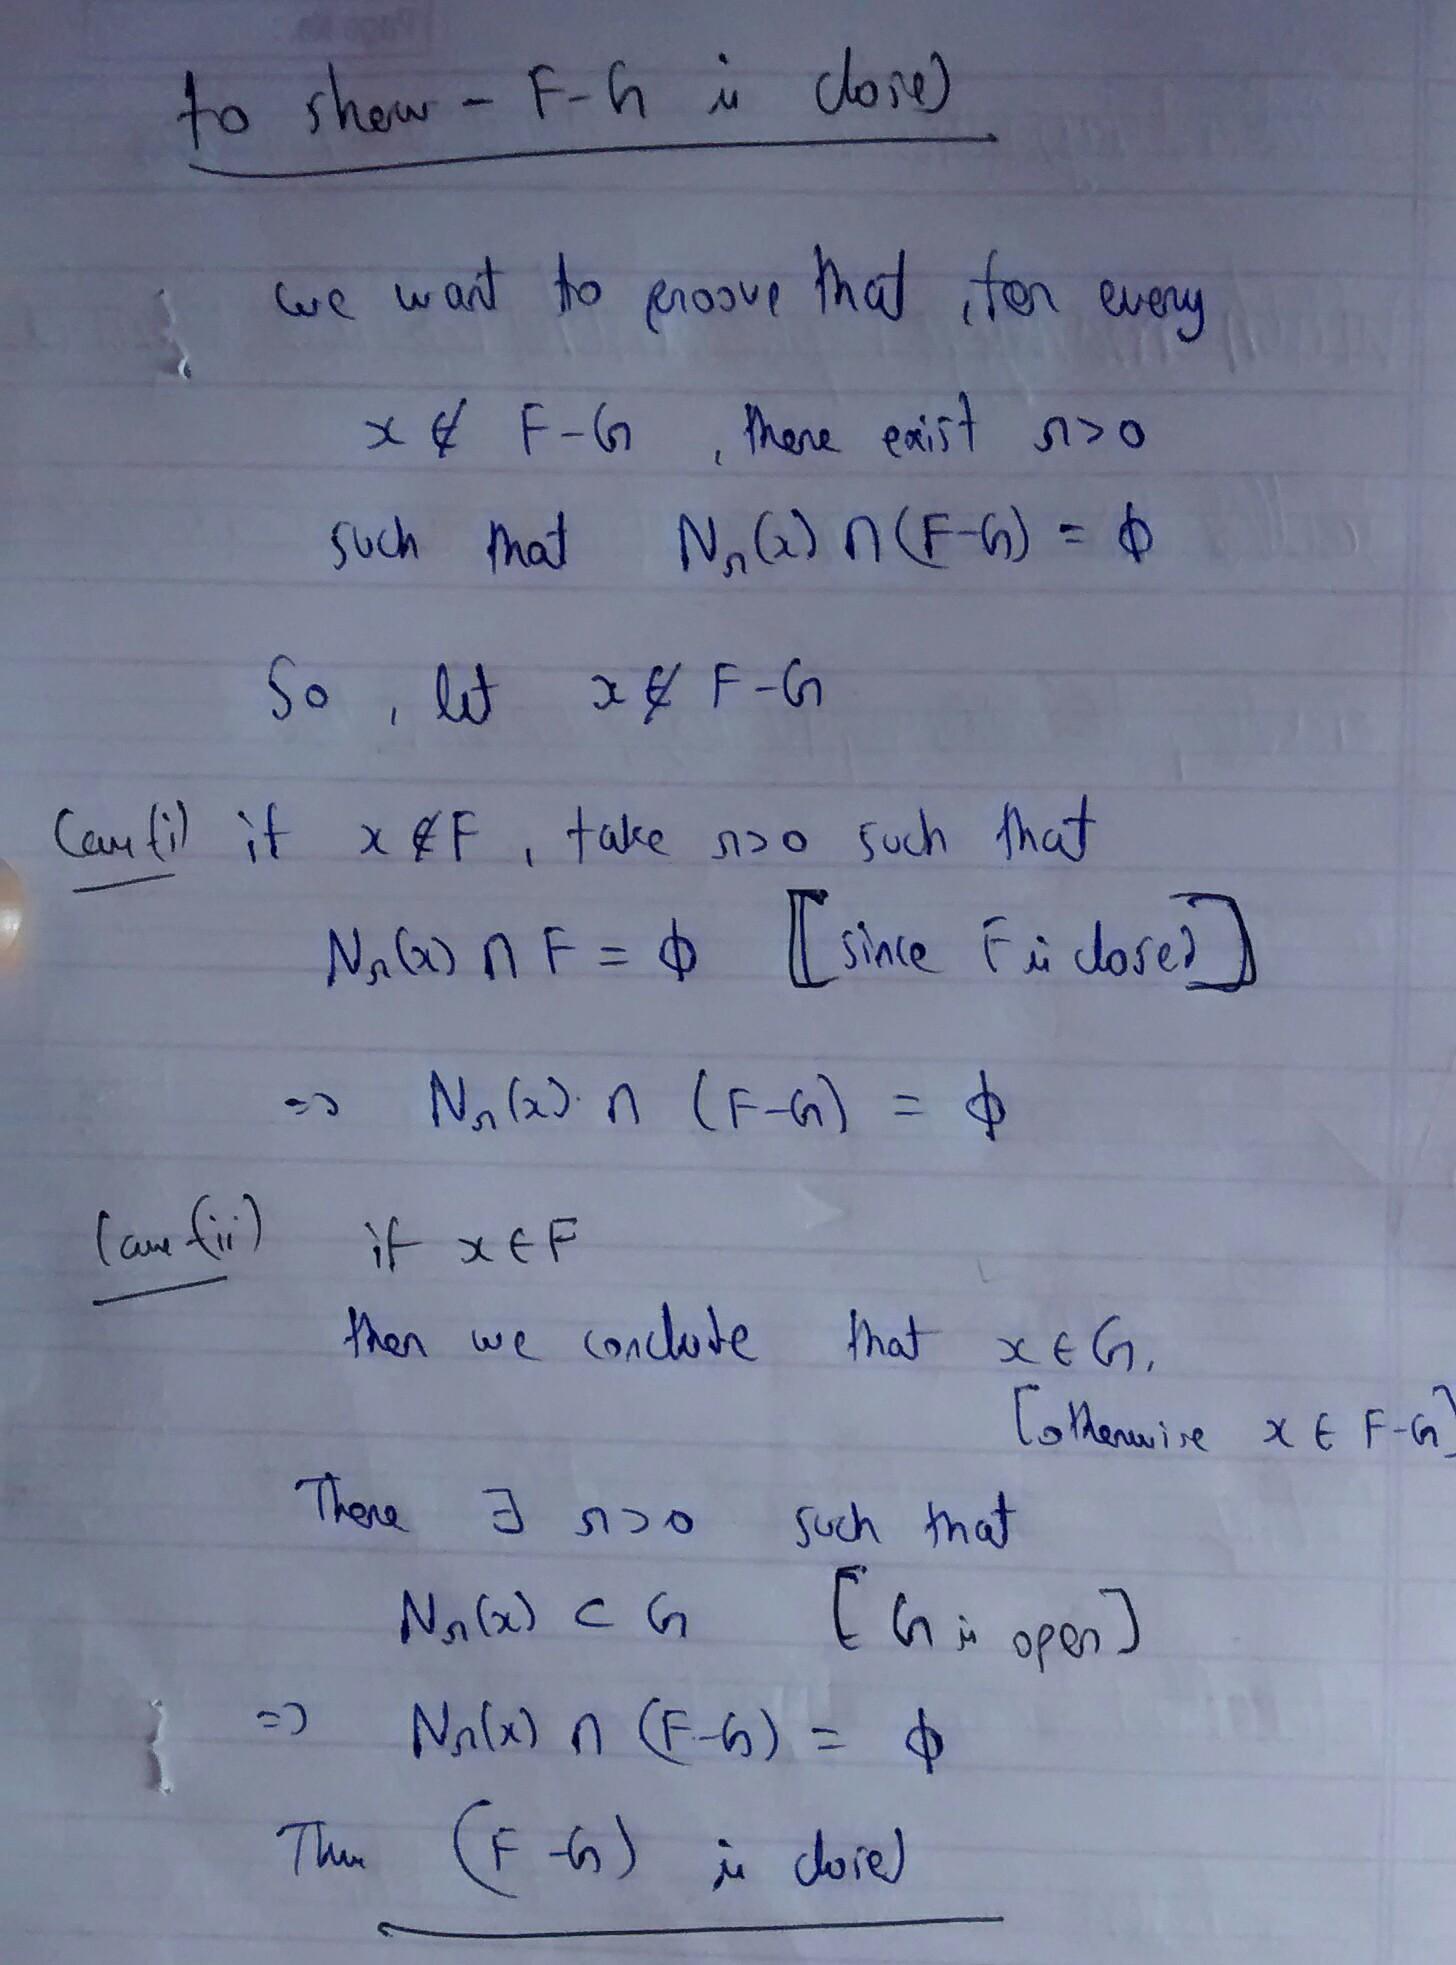 to show - F-G is closed
we want to proove that, for every
x ∉ F-G, there exist r>0
such that Nr(x) ∩ (F-G) = ϕ
So, let x ∉ F-G
Case (i) if x ∉ F, take r>0 such that
Nr(x) ∩ F = ϕ [since F is closed]
=> Nr(x) ∩ (F-G) = ϕ
Case (ii) if x ∈ F
then we conclude that x ∈ G,
[otherwise x ∈ F-G]
There ∃ r>0 such that
Nr(x) ⊂ G [G is open]
=> Nr(x) ∩ (F-G) = ϕ
Thus (F-G) is closed